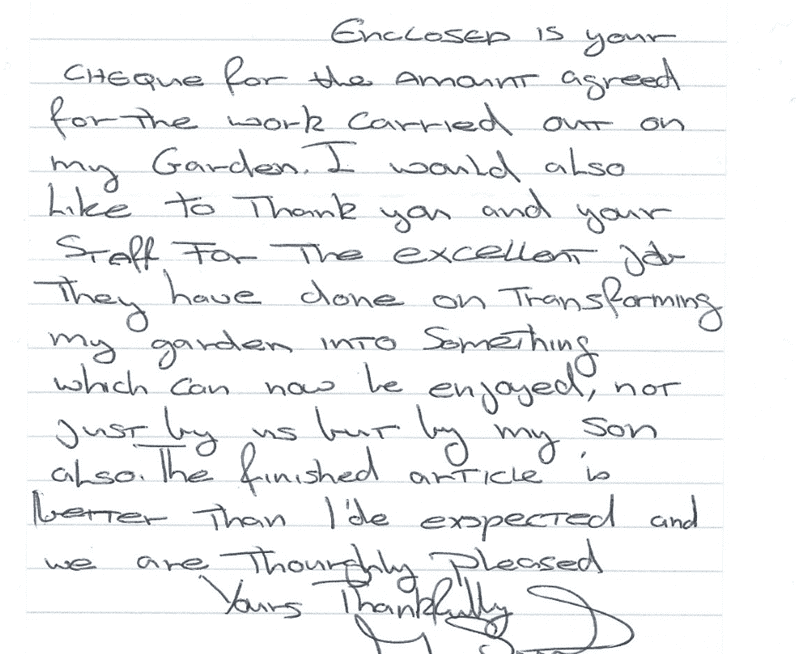 Enclosed is your
CHEQue for the Amount agreed
for The work carried out on
my Garden. I would also
Like to Thank you and your
Staff For The excellent Job
They have done on Transforming
my garden into Something
which can now be enjoyed, not
just by us but by my son
also. The finished article is
better Than I'de exspected and
we are Thourghly pleased
Yours Thankfully